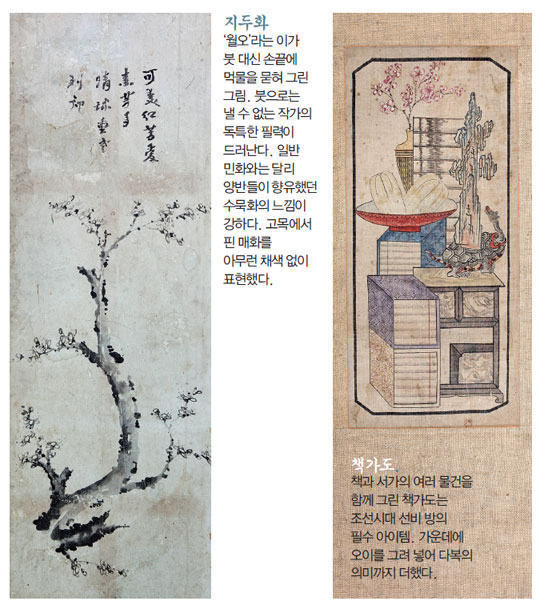 지두화
‘월오’라는 이가
붓 대신 손끝에
먹물을 묻혀 그린
그림. 붓으로는
낼 수 없는 작가의
독특한 필력이
드러난다. 일반
민화와는 달리
양반들이 향유했던
수묵화의 느낌이
강하다. 고목에서
핀 매화를
아무런 채색 없이
표현했다.
책가도
책과 서가의 여러 물건을
함께 그린 책가도는
조선시대 선비 방의
필수 아이템. 가운데에
오이를 그려 넣어 다복의
의미까지 더했다.